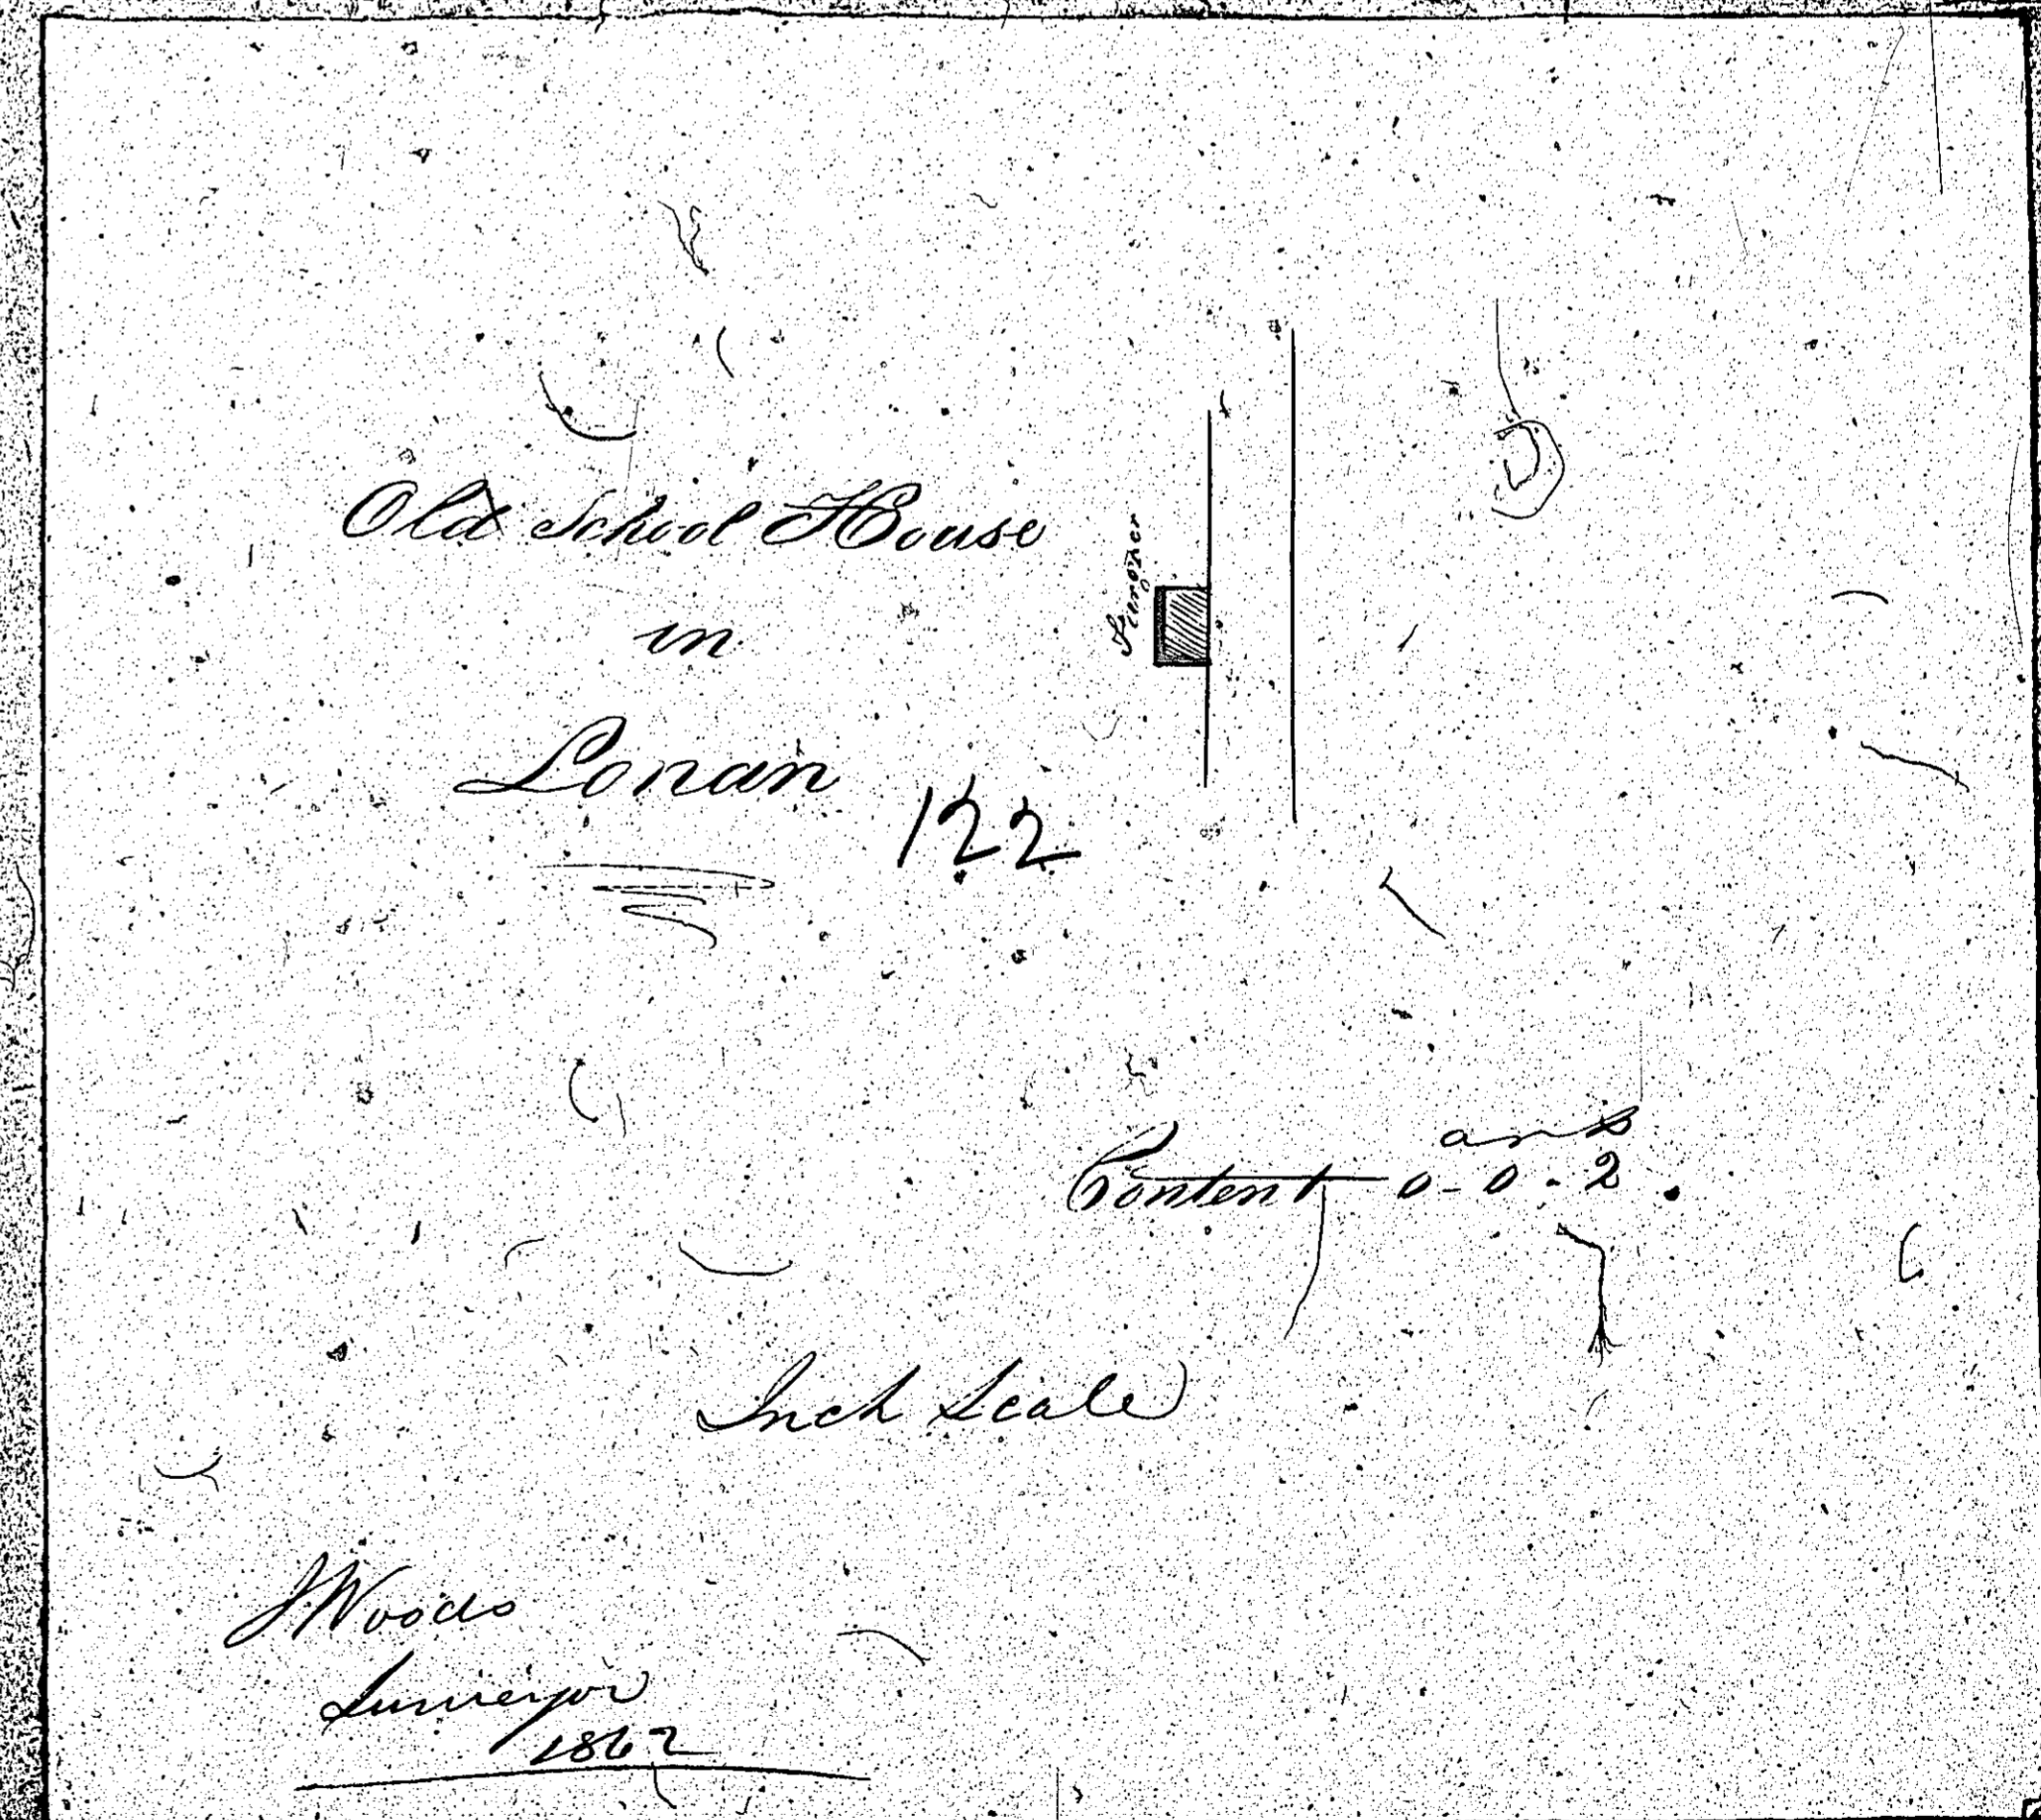 Old School House
in
Lonan
122
a r p
Content 0-0-2.
Inch Scale
J Woods
Surveyor
1862